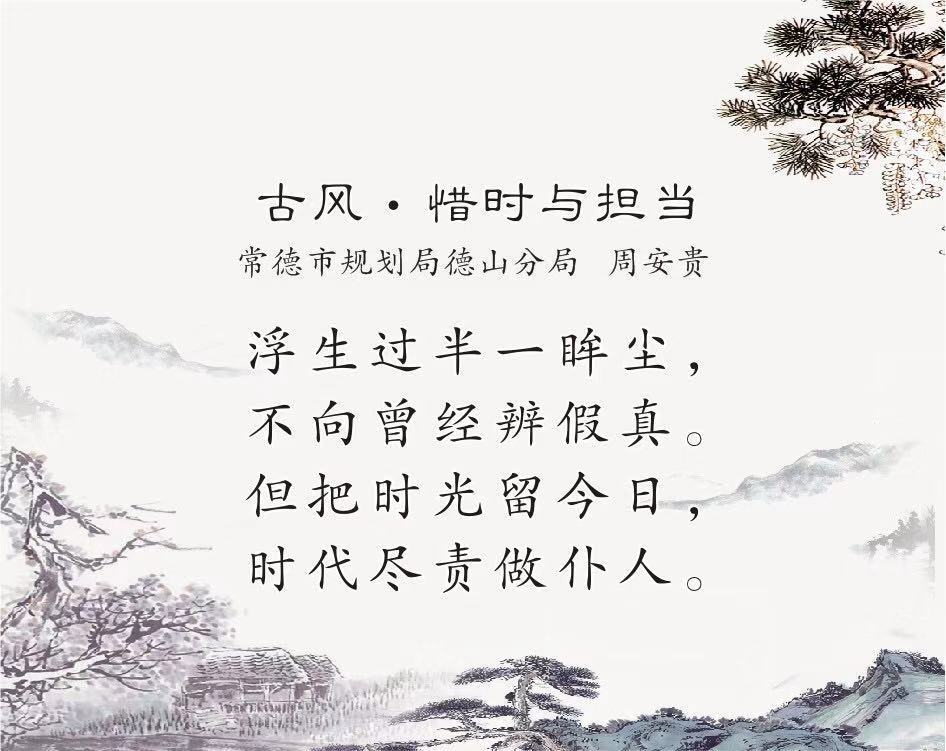 古风·惜时与担当
常德市规划局德山分局 周安贵
浮生过半一眸尘，
不向曾经辨假真。
但把时光留今日，
时代尽责做仆人。